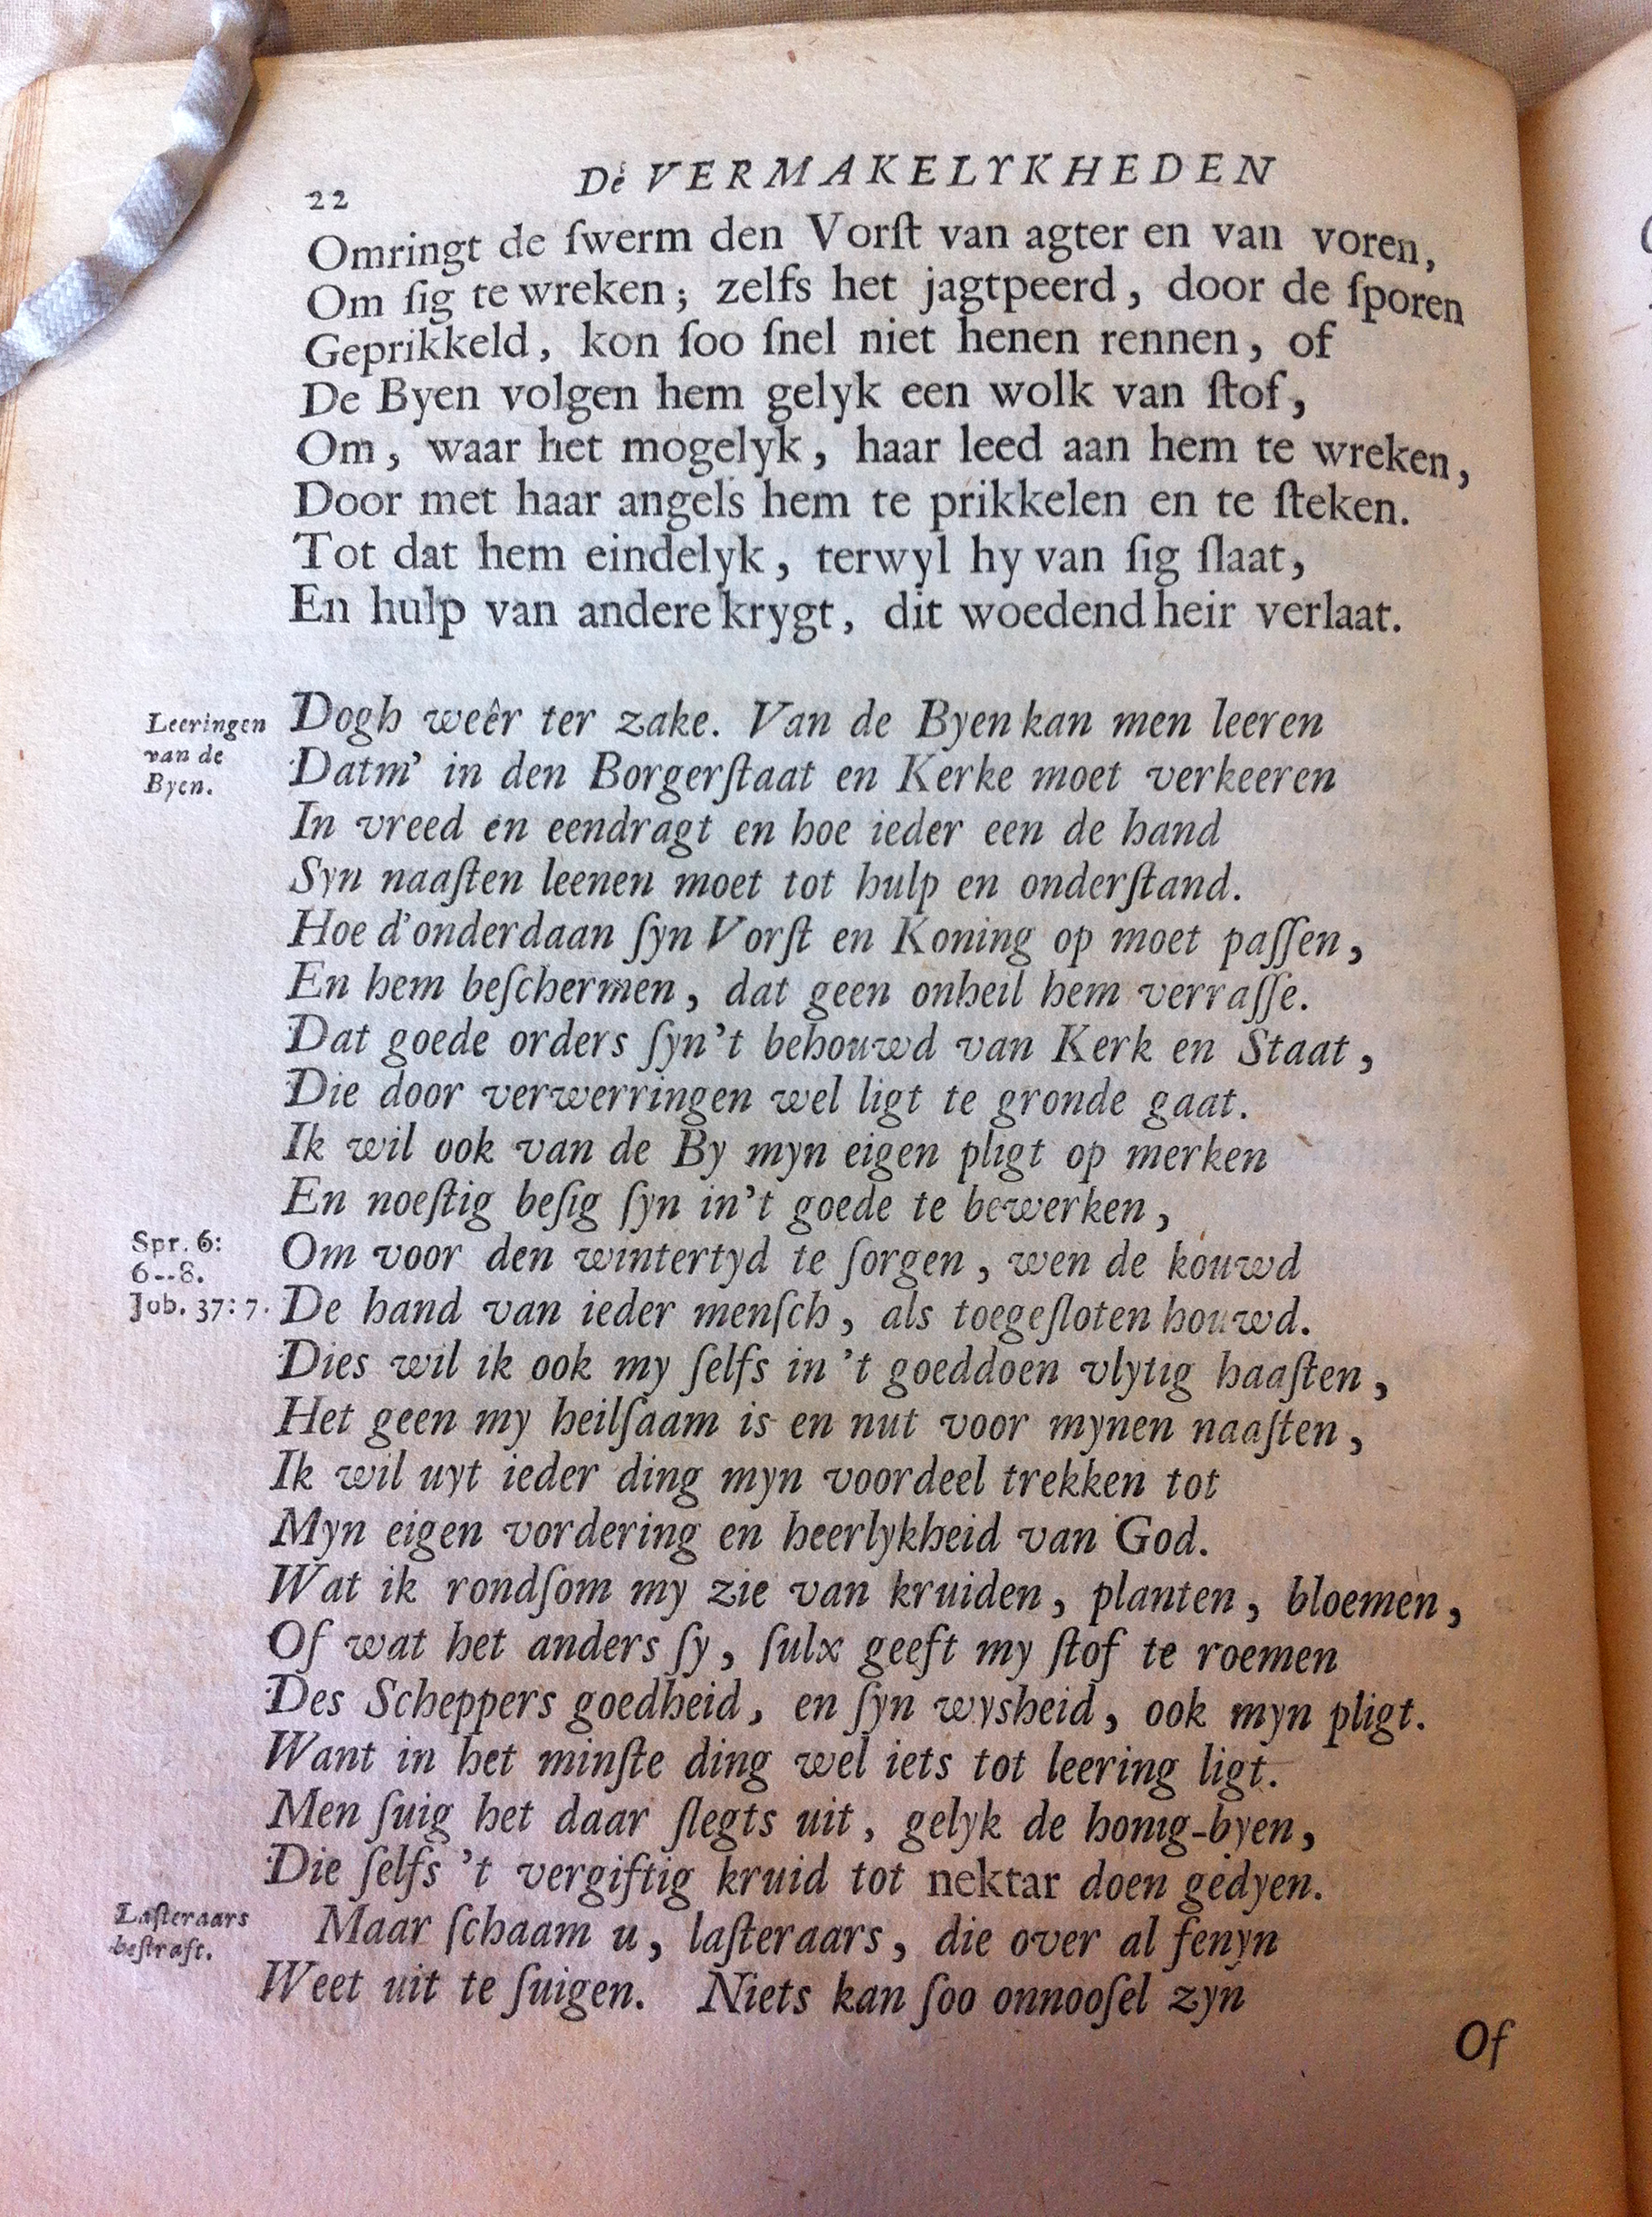 22 De VERMAKELYKHEDEN
Omringt de ſwerm den Vorſt van agter en van voren,
Om ſig te wreken; zelfs het jagtpeerd, door de ſporen
Geprikkeld, kon ſoo ſnel niet henen rennen, of
De Byen volgen hem gelyk een wolk van ſtof,
Om, waar het mogelyk, haar leed aan hem te wreken,
Door met haar angels hem te prikkelen en te ſteken.
Tot dat hem eindelyk, terwyl hy van ſig ſlaat,
En hulp van andere krygt, dit woedend heir verlaat.
Leeringen
van de
Byen.
Dogh weêr ter zake. Van de Byen kan men leeren
Datm' in den Borgerſtaat en Kerke moet verkeeren
In vreed en eendragt en hoe ieder een de hand
Syn naaſten leenen moet tot hulp en onderſtand.
Hoe d'onderdaan ſyn Vorſt en Koning op moet paſſen,
En hem beſchermen, dat geen onheil hem verraſſe.
Dat goede orders ſyn't behouwd van Kerk en Staat,
Die door verwerringen wel ligt te gronde gaat.
Ik wil ook van de By myn eigen pligt op merken
En noeſtig beſig ſyn in't goede te bewerken,
Spr. 6:
6--8.
Job. 37: 7.
Om voor den wintertyd te ſorgen, wen de kouwd
De hand van ieder menſch, als toegeſloten houwd.
Dies wil ik ook my ſelfs in 't goeddoen vlytig haaſten,
Het geen my heilſaam is en nut voor mynen naaſten,
Ik wil uyt ieder ding myn voordeel trekken tot
Myn eigen vordering en heerlykheid van God.
Wat ik rondſom my zie van kruiden, planten, bloemen,
Of wat het anders ſy, ſulx geeft my ſtof te roemen
Des Scheppers goedheid, en ſyn wysheid, ook myn pligt.
Want in het minſte ding wel iets tot leering ligt.
Men ſuig het daar ſlegts uit, gelyk de honig-byen,
Die ſelfs 't vergiftig kruid tot nektar doen gedyen.
Laſteraars
beſtraft.
Maar ſchaam u, laſteraars, die over al fenyn
Weet uit te ſuigen. Niets kan ſoo onnooſel zyn
Of